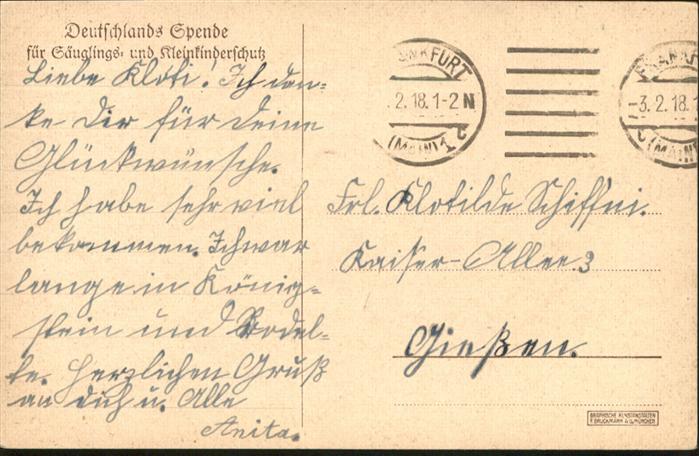 Deutschlands Spende
für Säuglings- und Kleinkinderschutz
Liebe Kloti! Ich dan-
ke Dir für deine
Glückwünsche.
Ich habe sehr viel
bekommen. Ich war
lange in König-
stein und Rodel-
te. Herzlichen Gruß
an dich u. Alle
Anita.
NKFURT
. 2.18.1-2 N
(MAIN) 1 C
FRANKF
-3.2.18.
(MAIN)
Frl. Klotilde Schiffni.
Kaiser-Allee 3
Gießen.
GRAPHISCHE KUNSTANSTALTEN
F. BRUCKMANN A.G. MÜNCHEN